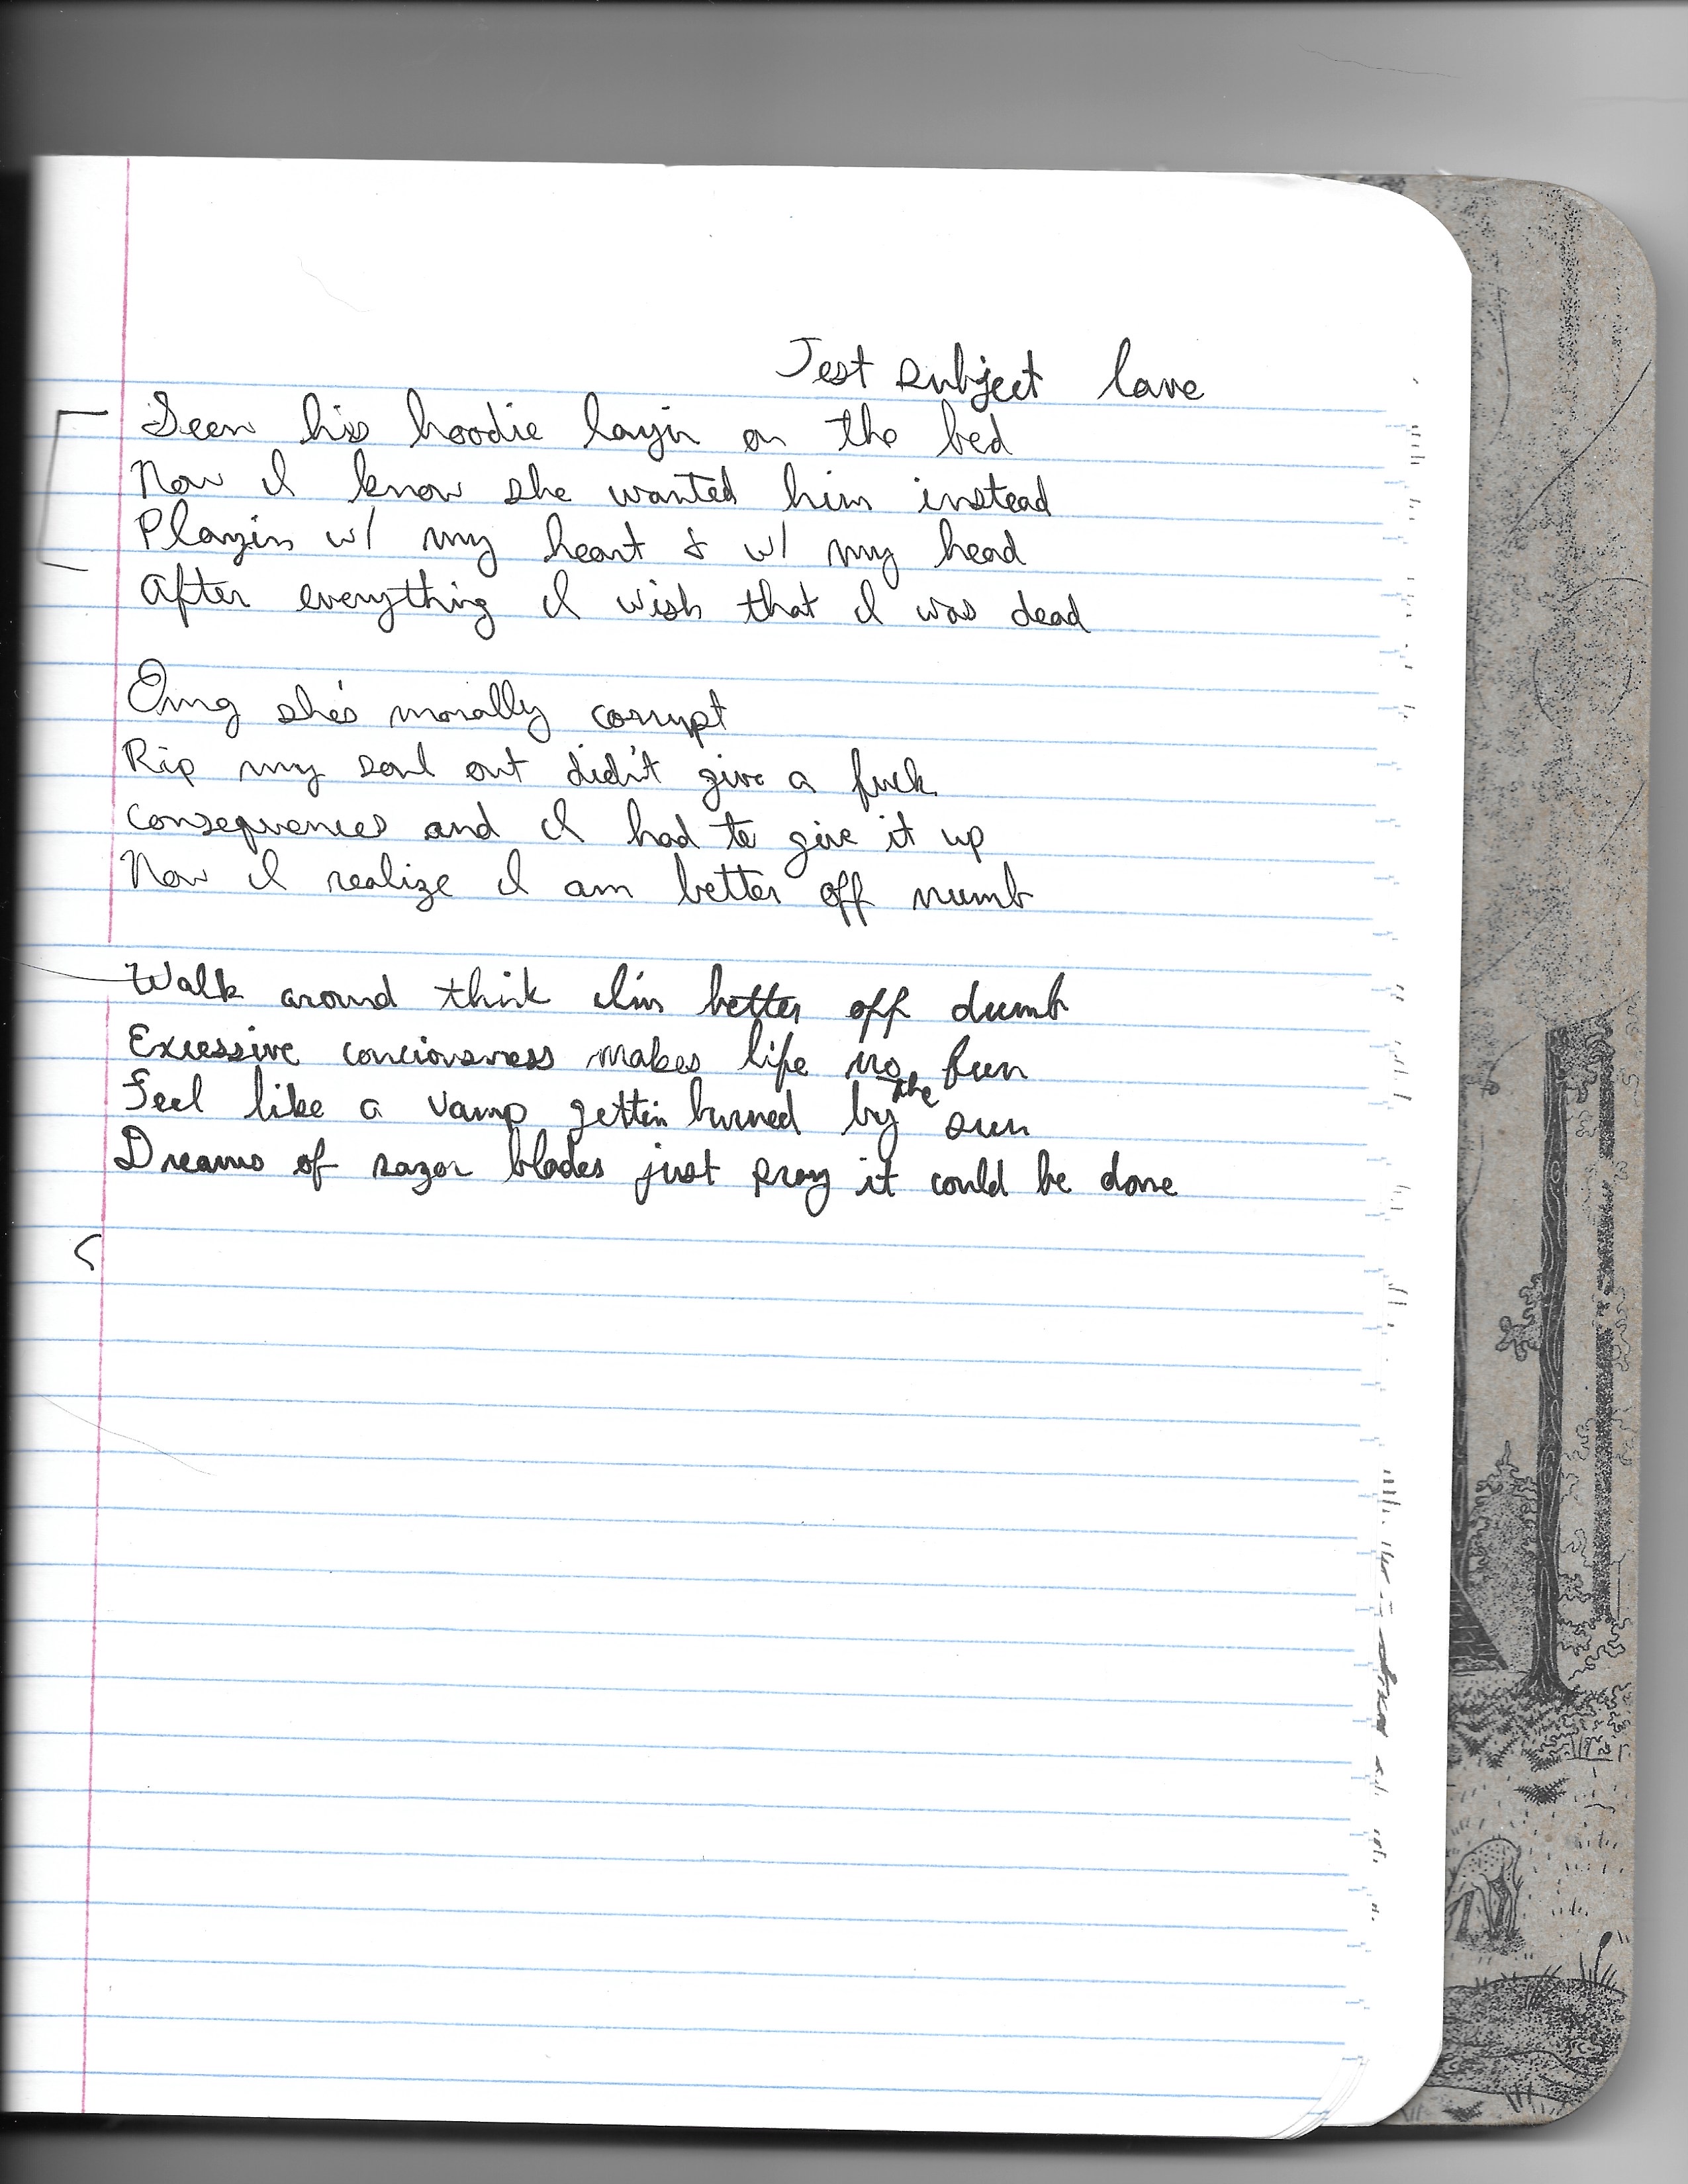 Test subject love
Seen his hoodie layin on the bed
Now I know she wanted him instead
Playin w/ my heart & w/ my head
After everything I wish that I was dead
Omg she's morally corrupt
Rip my soul out didn't give a fuck
Consequences and I had to give it up
Now I realize I am better off numb
Walk around think I'm better off dumb
Excessive conciousness makes life no fun
Feel like a vamp gettin burned by the sun
Dreams of razor blades just pray it could be done